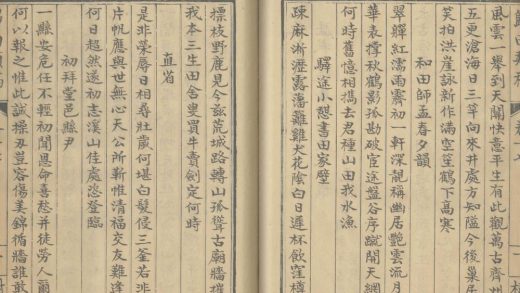 風雲一舉到天關快意平生有此觀萬古齊州
五更滄海日三竿向來井處方知隘今後巢居
笑拍洪崖詠新作滿空笙鶴下高寒
和田師孟春夕韻
翠嚲紅濡雨霽初一軒深靚稱幽居艶雲流月
華表撑秋鶴影孤勘破宦途盤谷序蹴開天網
何時舊憶相攜去君種山田我水漁
驛途小憩書田家壁
疎麻淅瀝露藩籬雞犬花陰白日遲杯飲窪樽
標枝野鹿見今茲荒城路轉山孤聳古廟牆摧
我本三生田舍叟買牛賣劍定何時
直省
是非榮辱日相尋壯歲何堪白髮侵三釜若非
片帆應與世無心天公所靳惟清福交友難逢
何日超然遂初志溪山佳處恣登臨
初拜堂邑縣尹
一縣安危任不輕初聞恩命喜愁并徒勞人爾
何以報之惟此誠操刃豈容傷美錦循牆誰敢